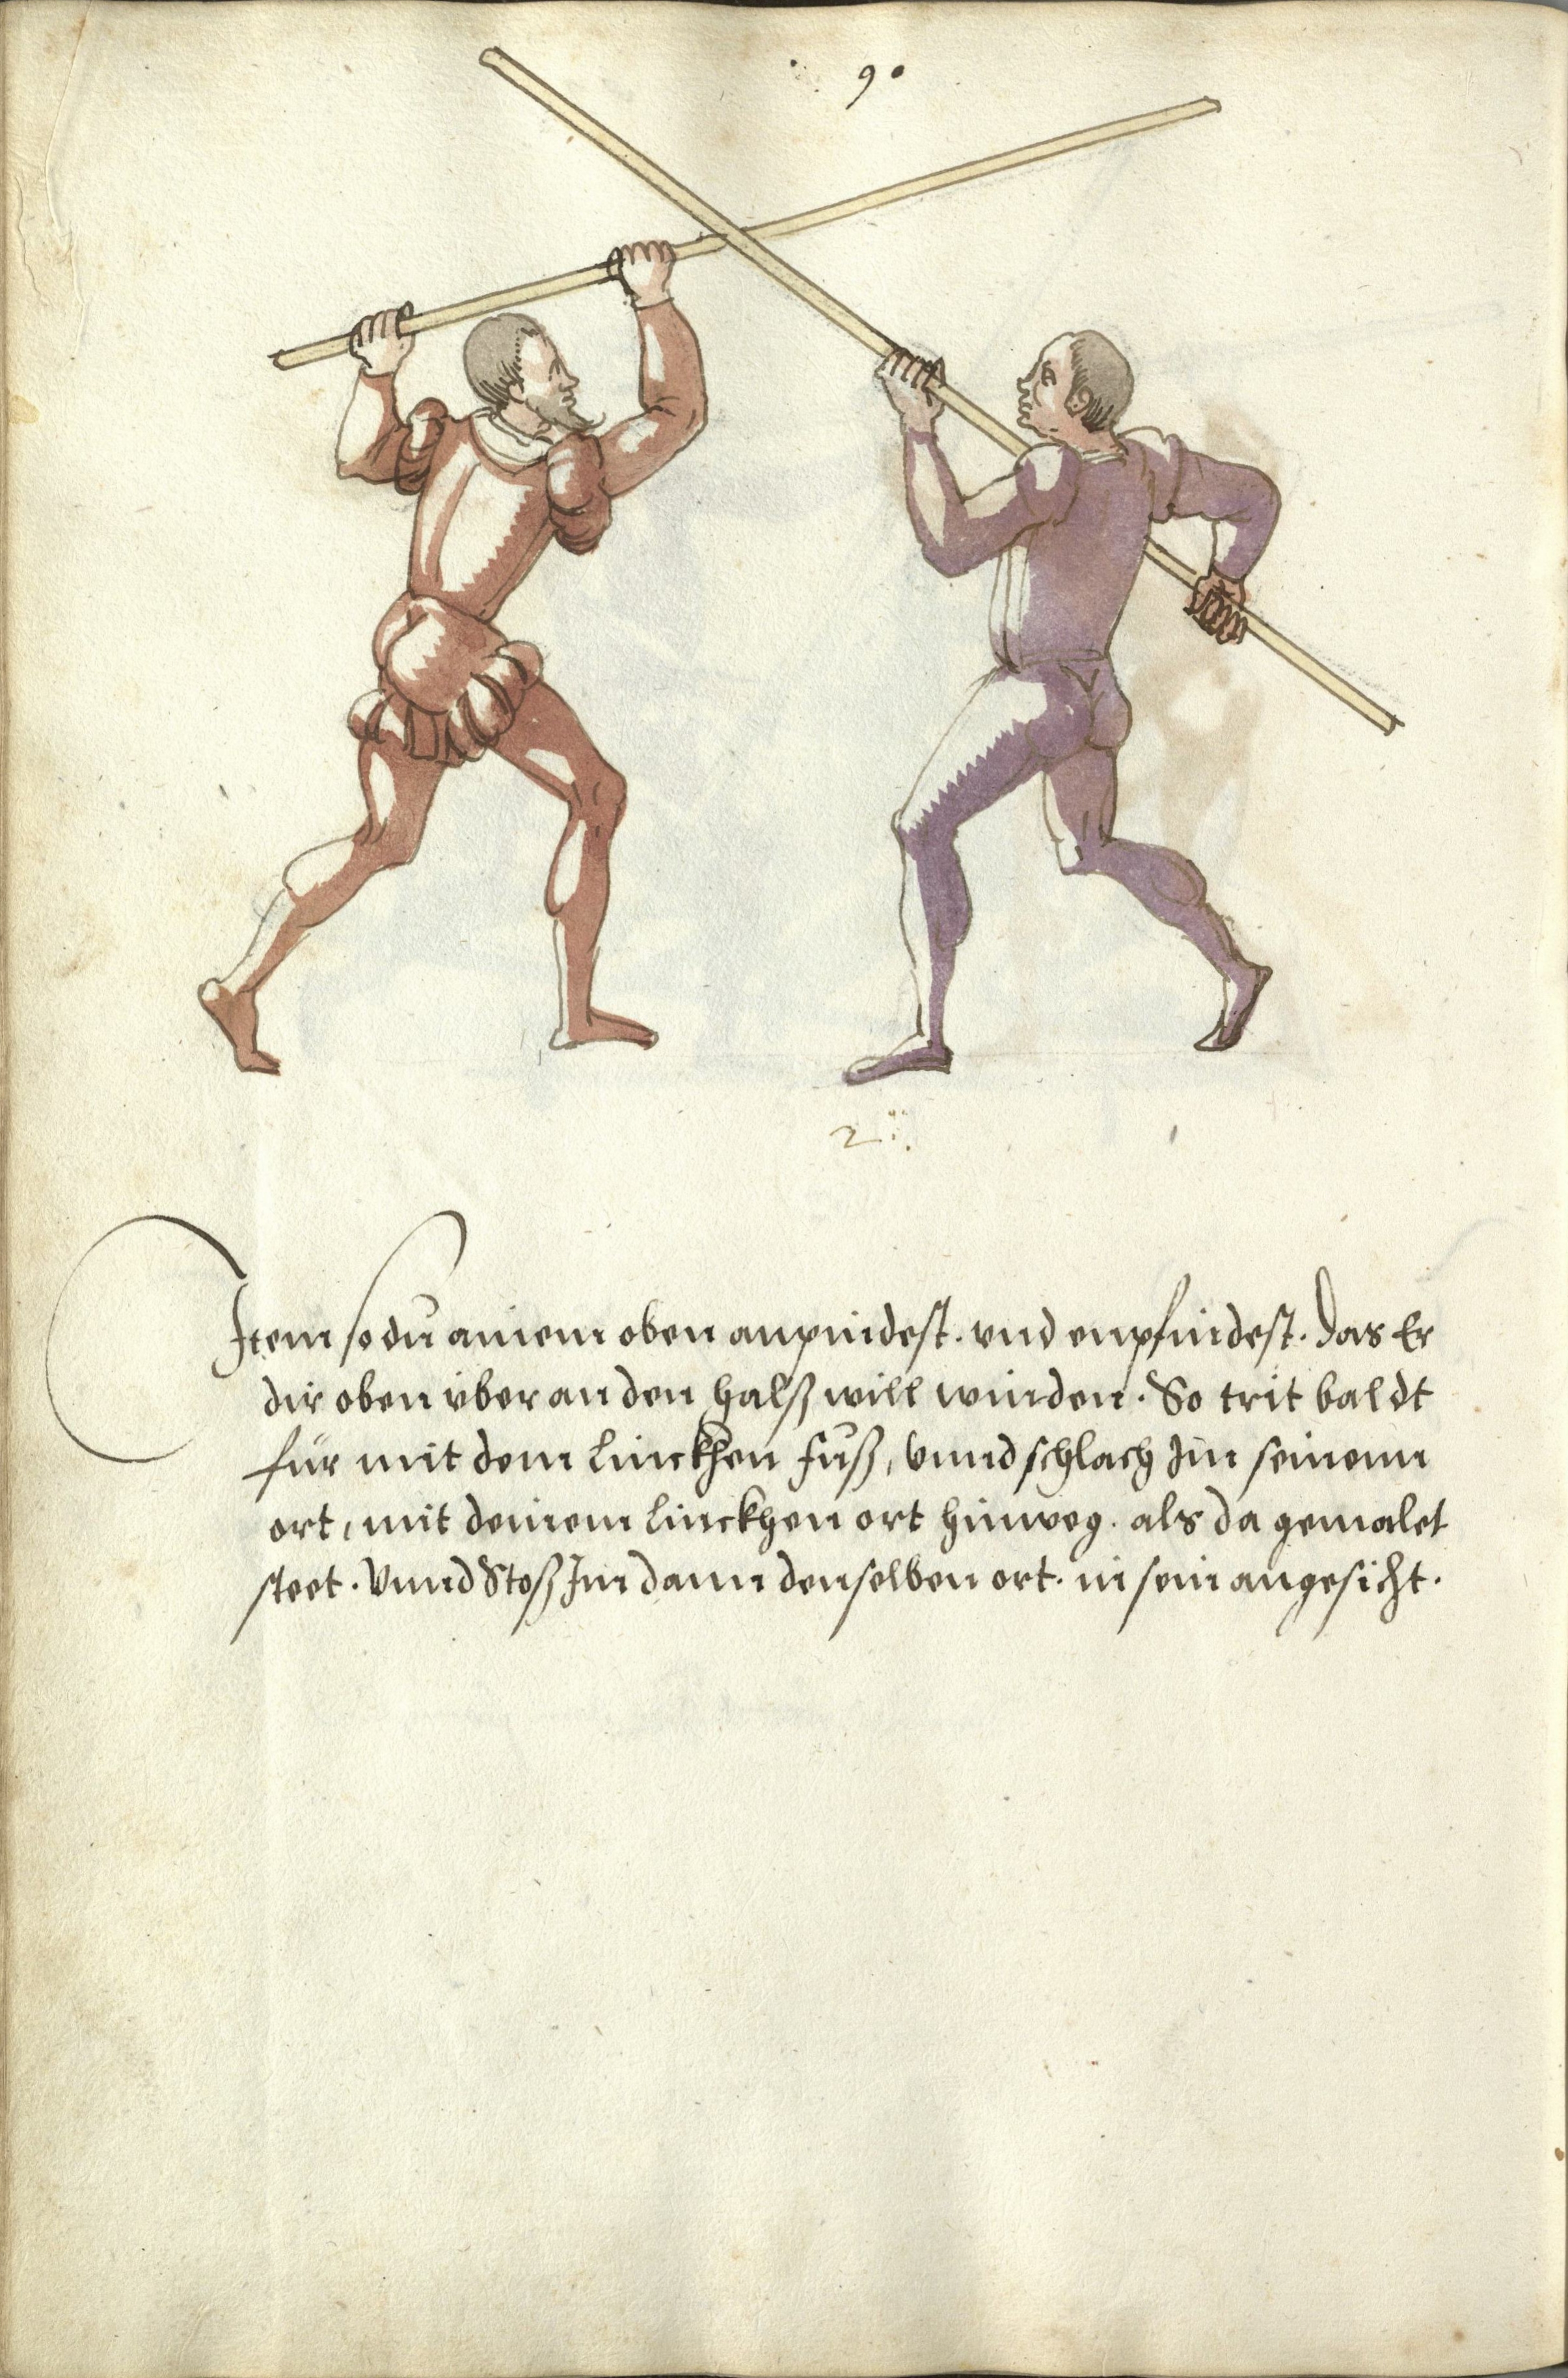 90
2
Item so du ainem oben anpindest. vnd enpfindest. das Er
dir oben vber an den halß will winden. So trit baldt
für mit dem linckhen fuß, vnnd schlach Im seinenn
ort, mit deinem linckhen ort hinweg. als da gemalet
steet. Vnnd Stoß Im dann denselben ort. in sein angesicht.